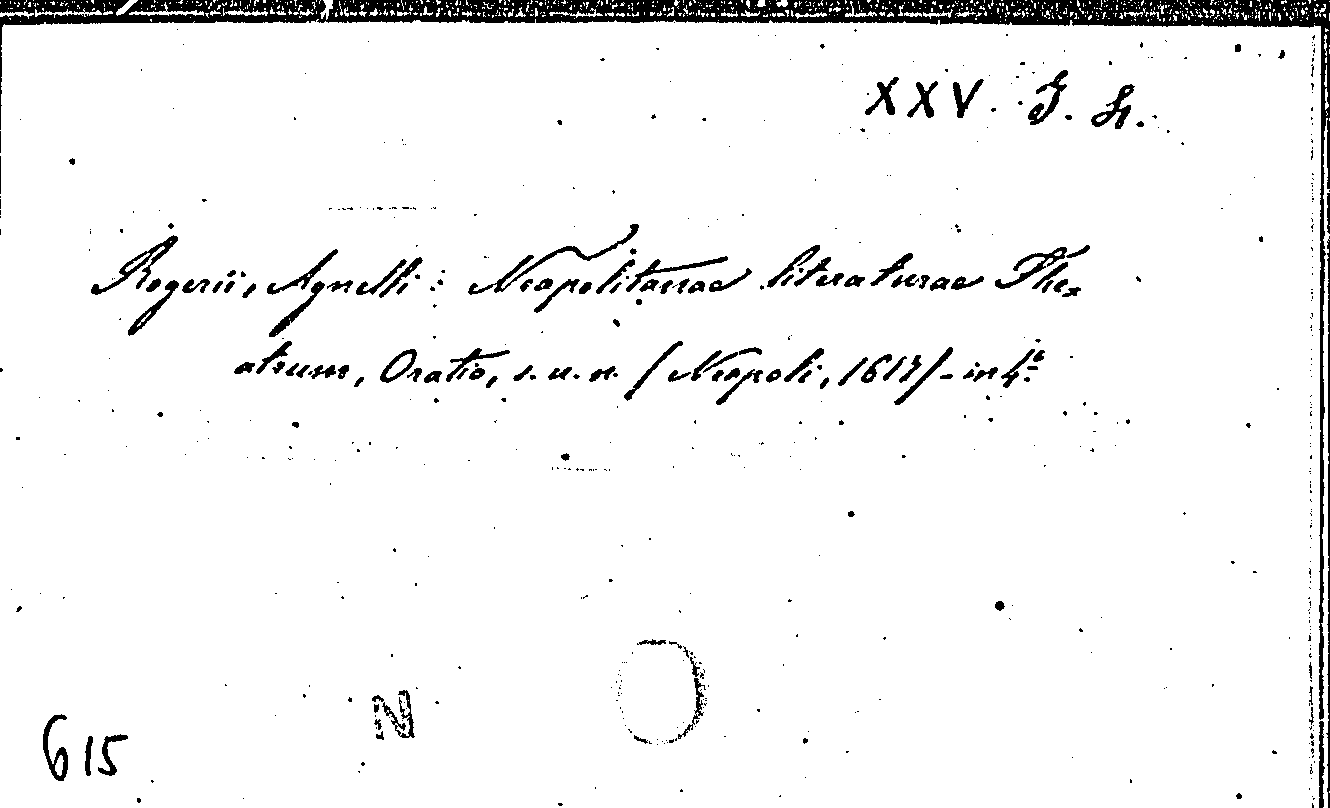 XXV. I. H.
Rogerii, Agnelli: Neapolitanae literaturae The=
atrum, Oratio, s. u. n. (Neapoli, 1617)- in 4º
N
615